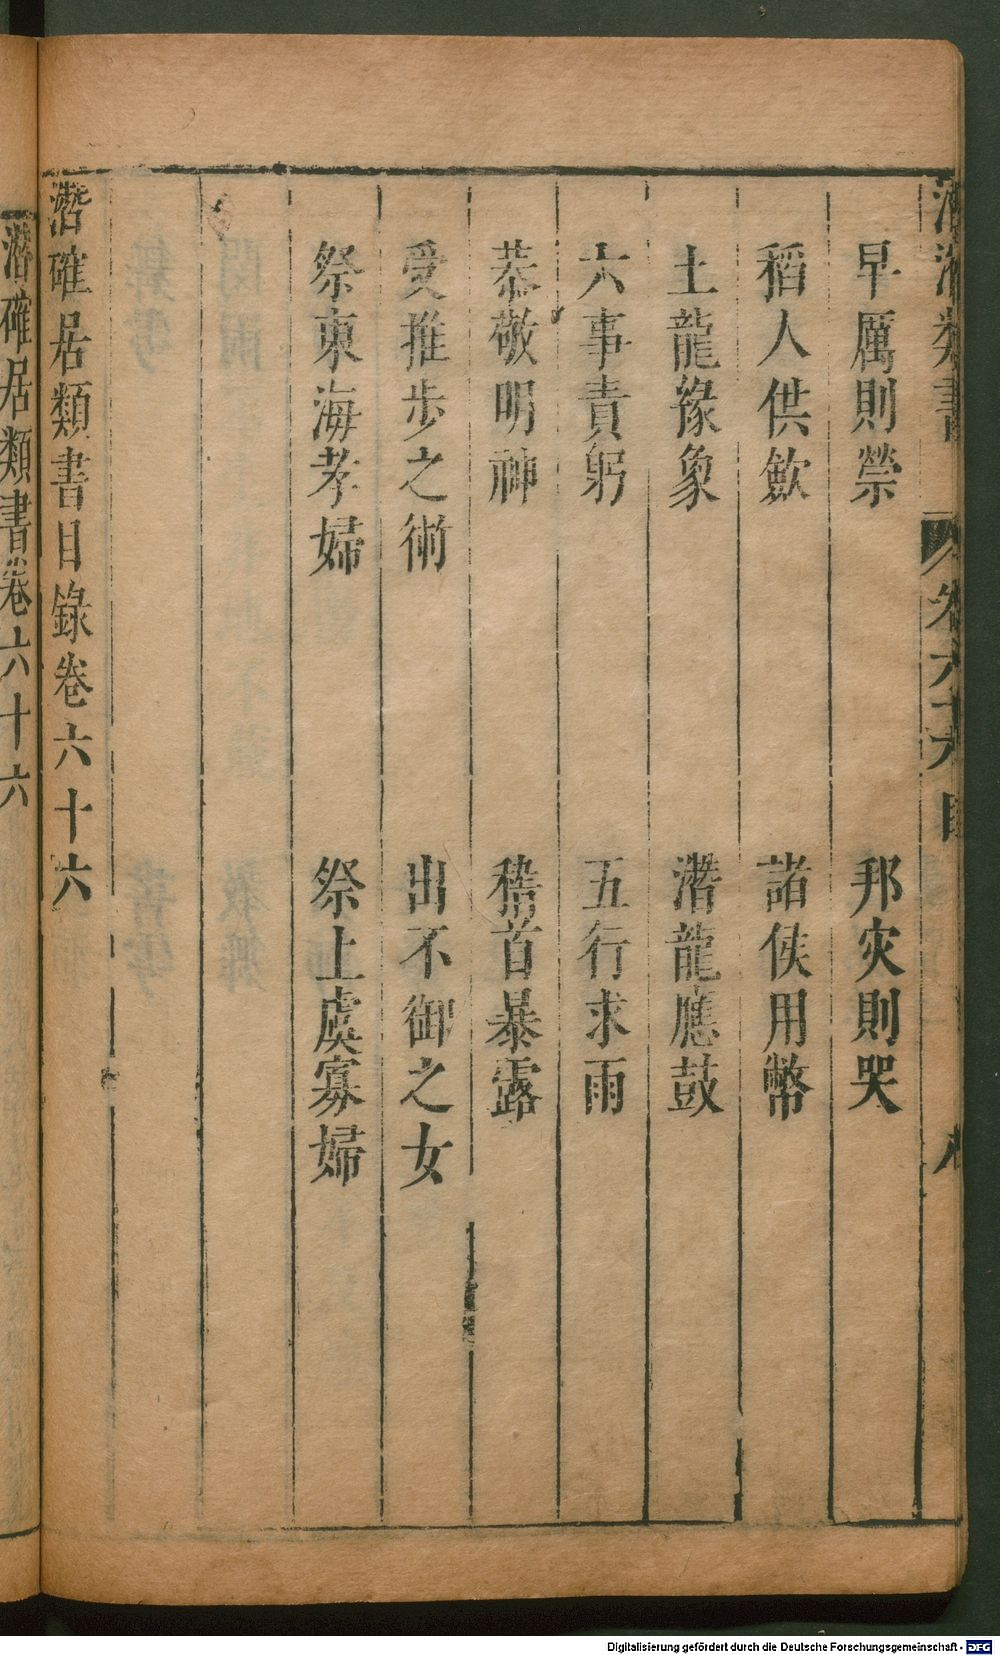 早厲則禜　邦灾則哭
稻人供歛　諸侯用幣
土龍緣象　潛龍應鼓
六事責躬　五行求雨
恭敬明神　稽首暴露
受推步之術　出不御之女
祭東海孝婦　祭上虞寡婦
潛確居類書目錄卷六十六
潛確居類書卷六十六
Digitalisierung gefördert durch die Deutsche Forschungsgemeinschaft - DFG